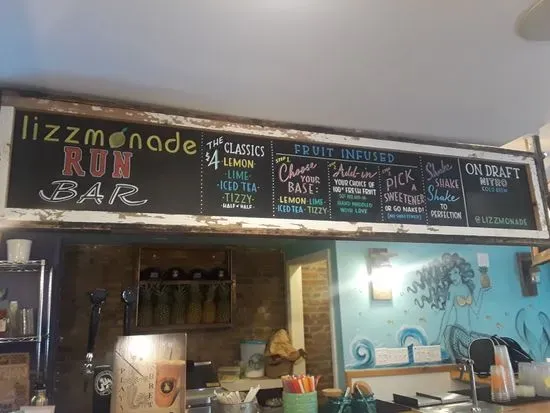 lizzmonade
RUN
BAR
THE
$4
CLASSICS
LEMON
LIME
ICED TEA
TIZZY
HALF & HALF
FRUIT INFUSED
STEP 1.
Choose
YOUR
BASE:
LEMON · LIME
ICED TEA · TIZZY
Add-in
YOUR CHOICE OF
100% FRESH FRUIT
HAND MUDDLED
WITH LOVE
PICK
A
SWEETENER
OR GO NAKED!
(NO SWEETENER)
Shake
SHAKE
Shake
TO
PERFECTION
ON DRAFT
NITRO
COLD BREW
@LIZZMONADE
PLAYA
BREW